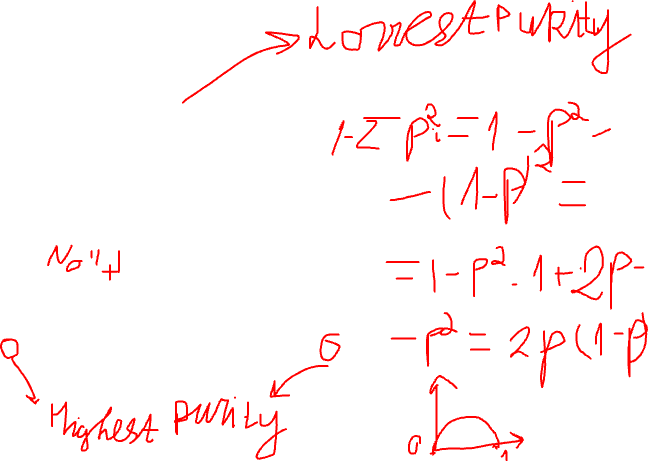 Lowest purity
1-Σ pᵢ² = 1 - p² -
- (1-p)² =
= 1 - p² - 1 + 2p -
- p² = 2p(1-p)
0
0
Highest purity
0 1